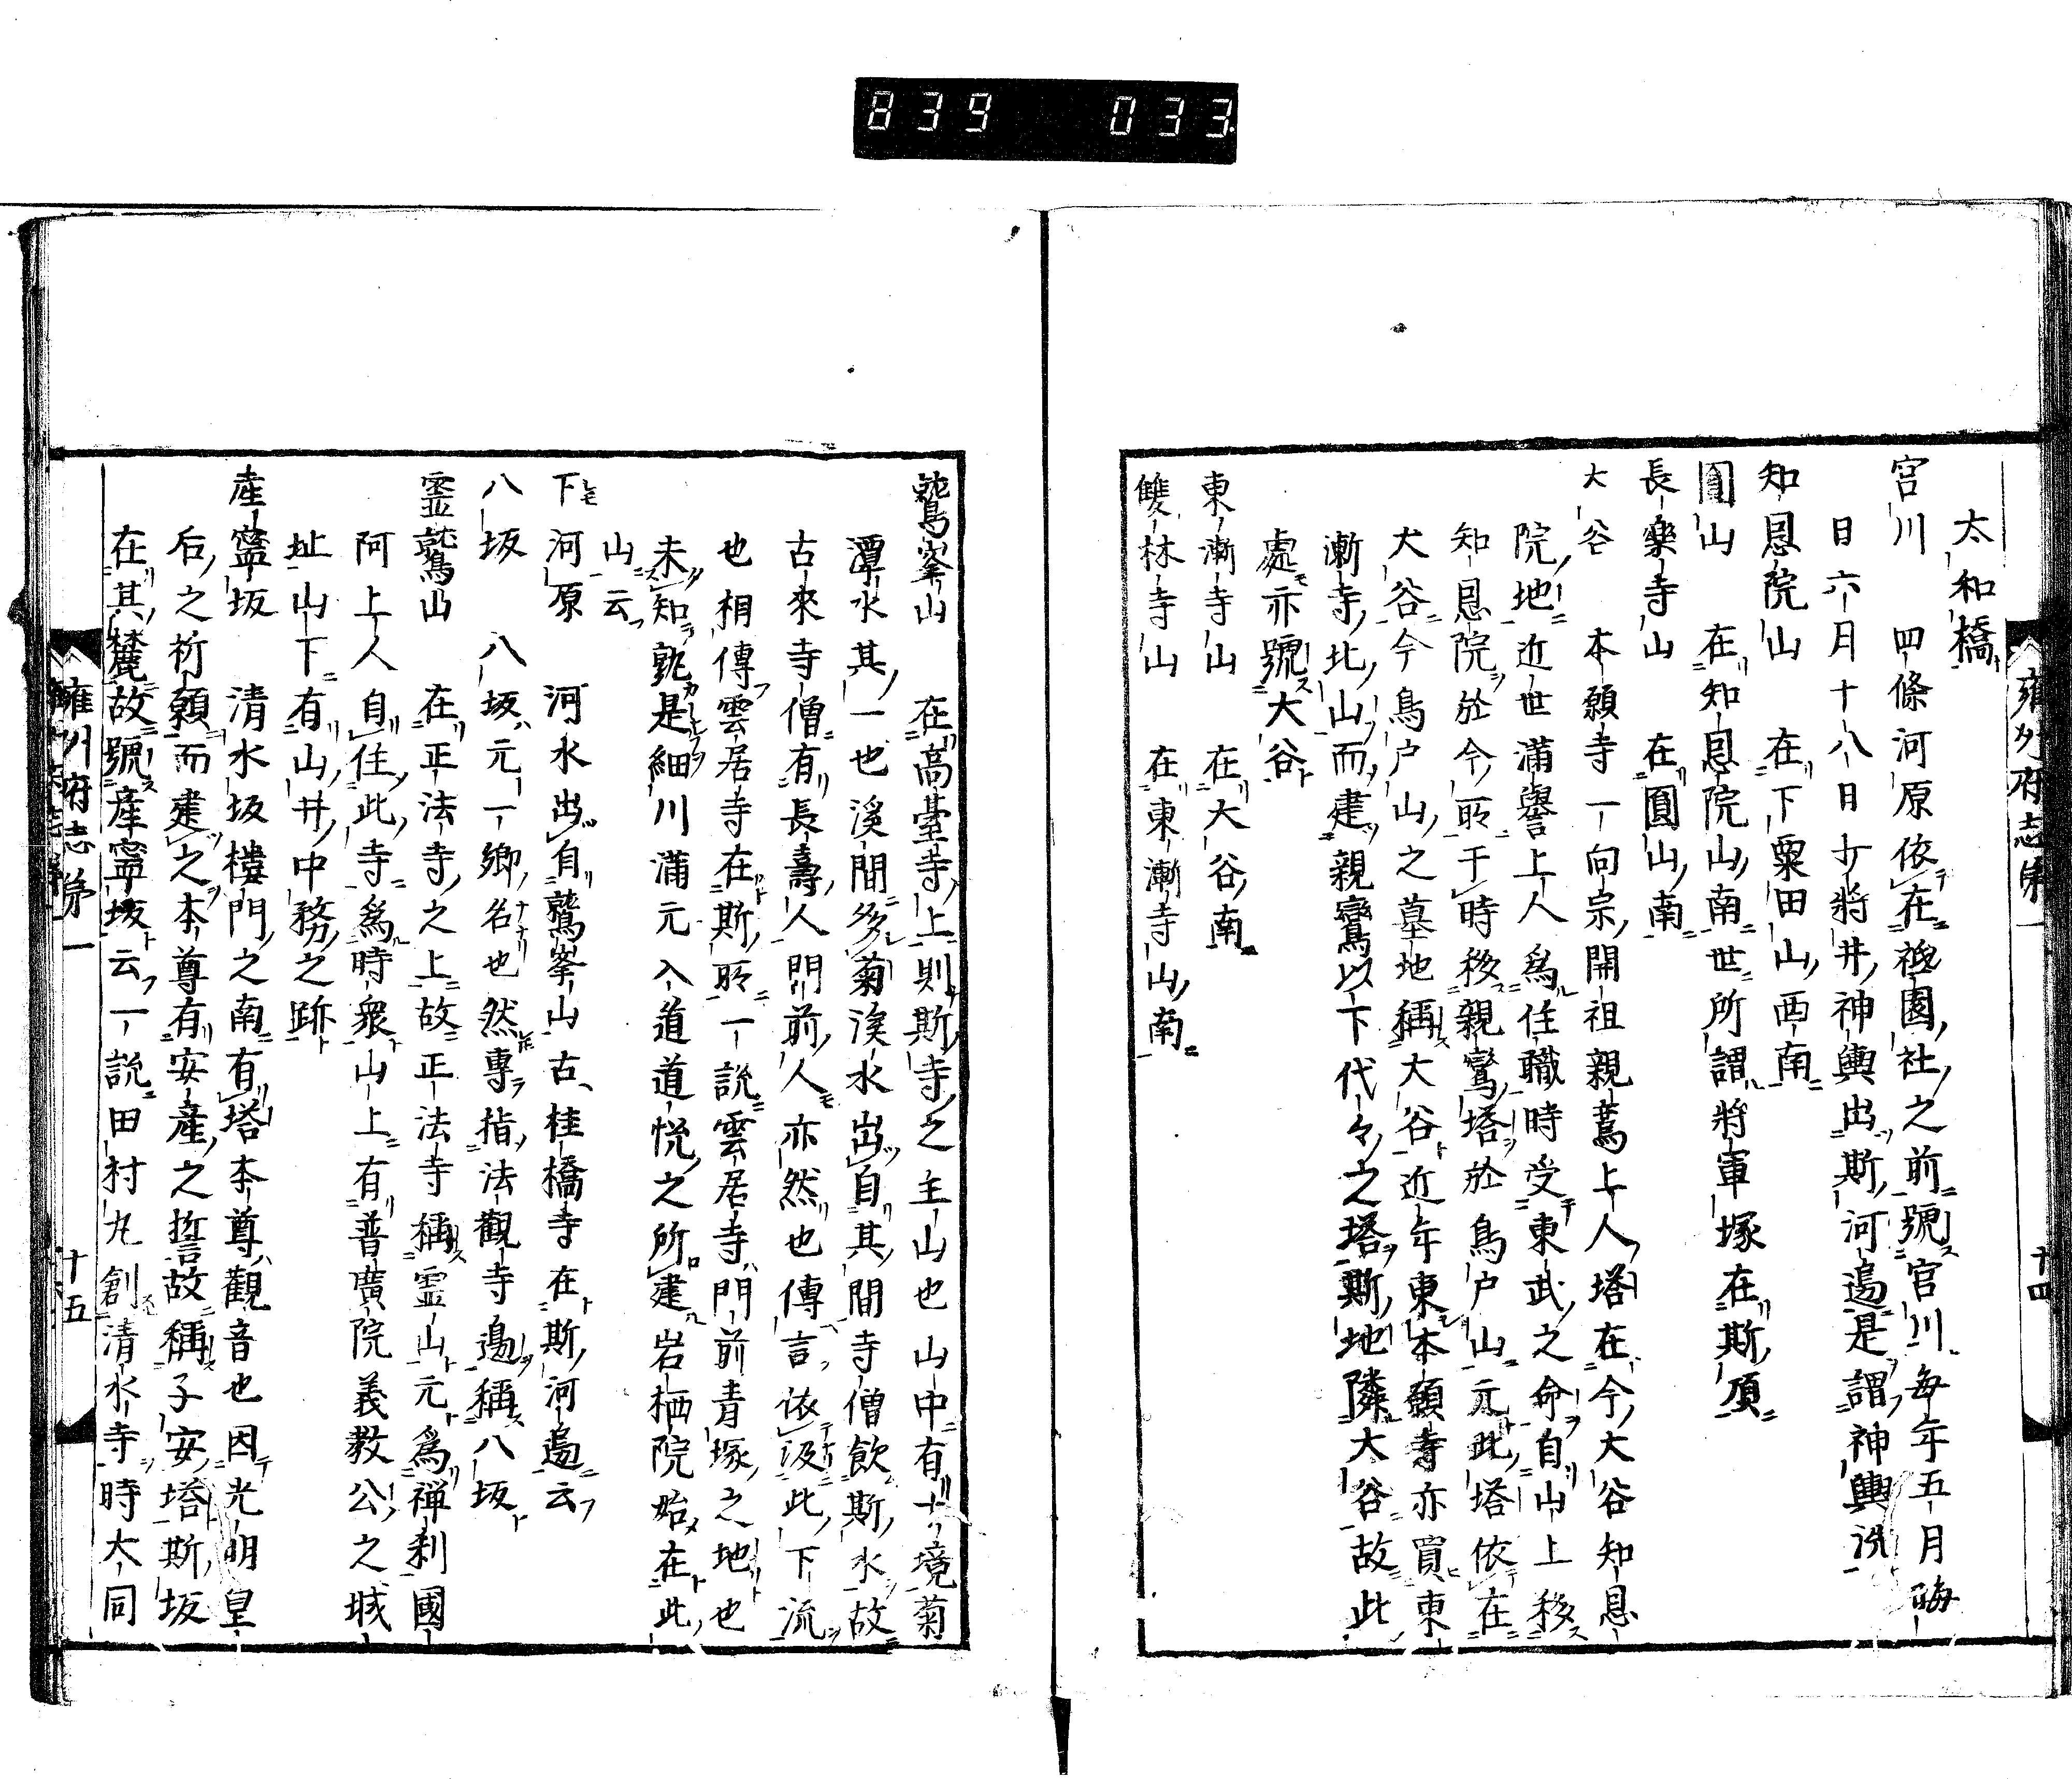 839 033
雍州府志第一
十四
太和橋
宮川 四條河原依在祗園社之前號宮川每年五月晦
日六月十八日少將井神輿出斯河邉是謂神輿洗
知恩院山 在下粟田山西南
圓山 在知恩院山南世所謂將軍塚在斯頂
長樂寺山 在圓山南
大谷 本願寺一向宗開祖親鸞上人塔在今大谷知恩
院地近世滿譽上人爲住職時受東武之命自山上移
知恩院於今所于時移親鸞塔於鳥户山元此塔依在
大谷今鳥户山之墓地稱大谷近年東本願寺亦買東
漸寺北山而建親鸞以下代々之塔斯地隣大谷故此
處亦號大谷
東漸寺山 在大谷南
雙林寺山 在東漸寺山南
鷲峯山 在高臺寺上則斯寺之主山也山中有十境菊
潭水其一也溪間多菊溪水出自其間寺僧飮斯水故
古來寺僧有長壽人門前人亦然也傳言依汲此下流
也相傳雲居寺在斯所一說雲居寺門前青塚之地也
未知孰是細川滿元入道道悦之所建岩栖院始在此
山云
下河原 河水出自鷲峯山古桂橋寺在斯河邉云
八坂 八坂元一鄉名也然專指法觀寺邉稱八坂
霊鷲山 在正法寺之上故正法寺稱霊山元爲禅刹國
阿上人自住此寺爲時衆山上有普廣院義教公之城
址山下有山井中務之跡
産寧坂 清水坂樓門之南有塔本尊觀音也因光明皇
后之祈願而建之本尊有安産之誓故稱子安塔斯坂
在其麓故號産寧坂云一說田村丸創清水寺時大同
雍州府志第一
十五